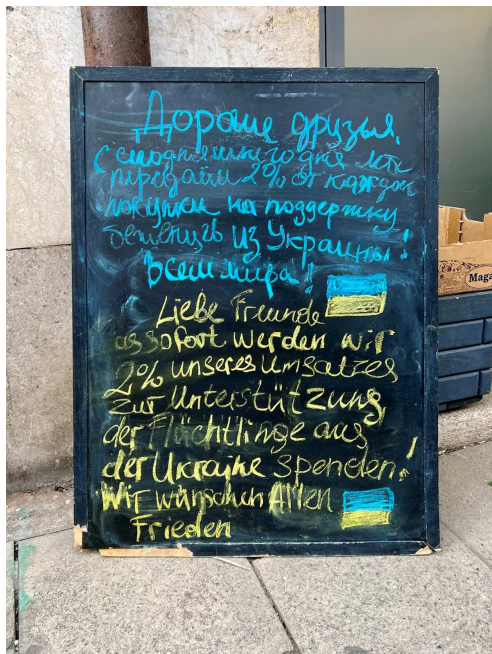 Дорогие друзья,
с сегодняшнего дня мы
передаём 2% от каждой
покупки на поддержку
беженцев из Украины!
Всем мира!
Liebe Freunde
ab sofort werden wir
2% unseres Umsatzes
zur Unterstützung
der Flüchtlinge aus
der Ukraine spenden!
Wir wünschen Allen
Frieden
Maga